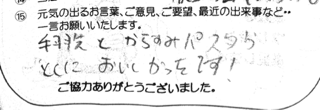 ⑮ 元気の出るお言葉、ご意見、ご要望、最近の出来事など‥
一言お願いいたします。
とからすみパスタが
とくに おいしかったです!
ご協力ありがとうございました。